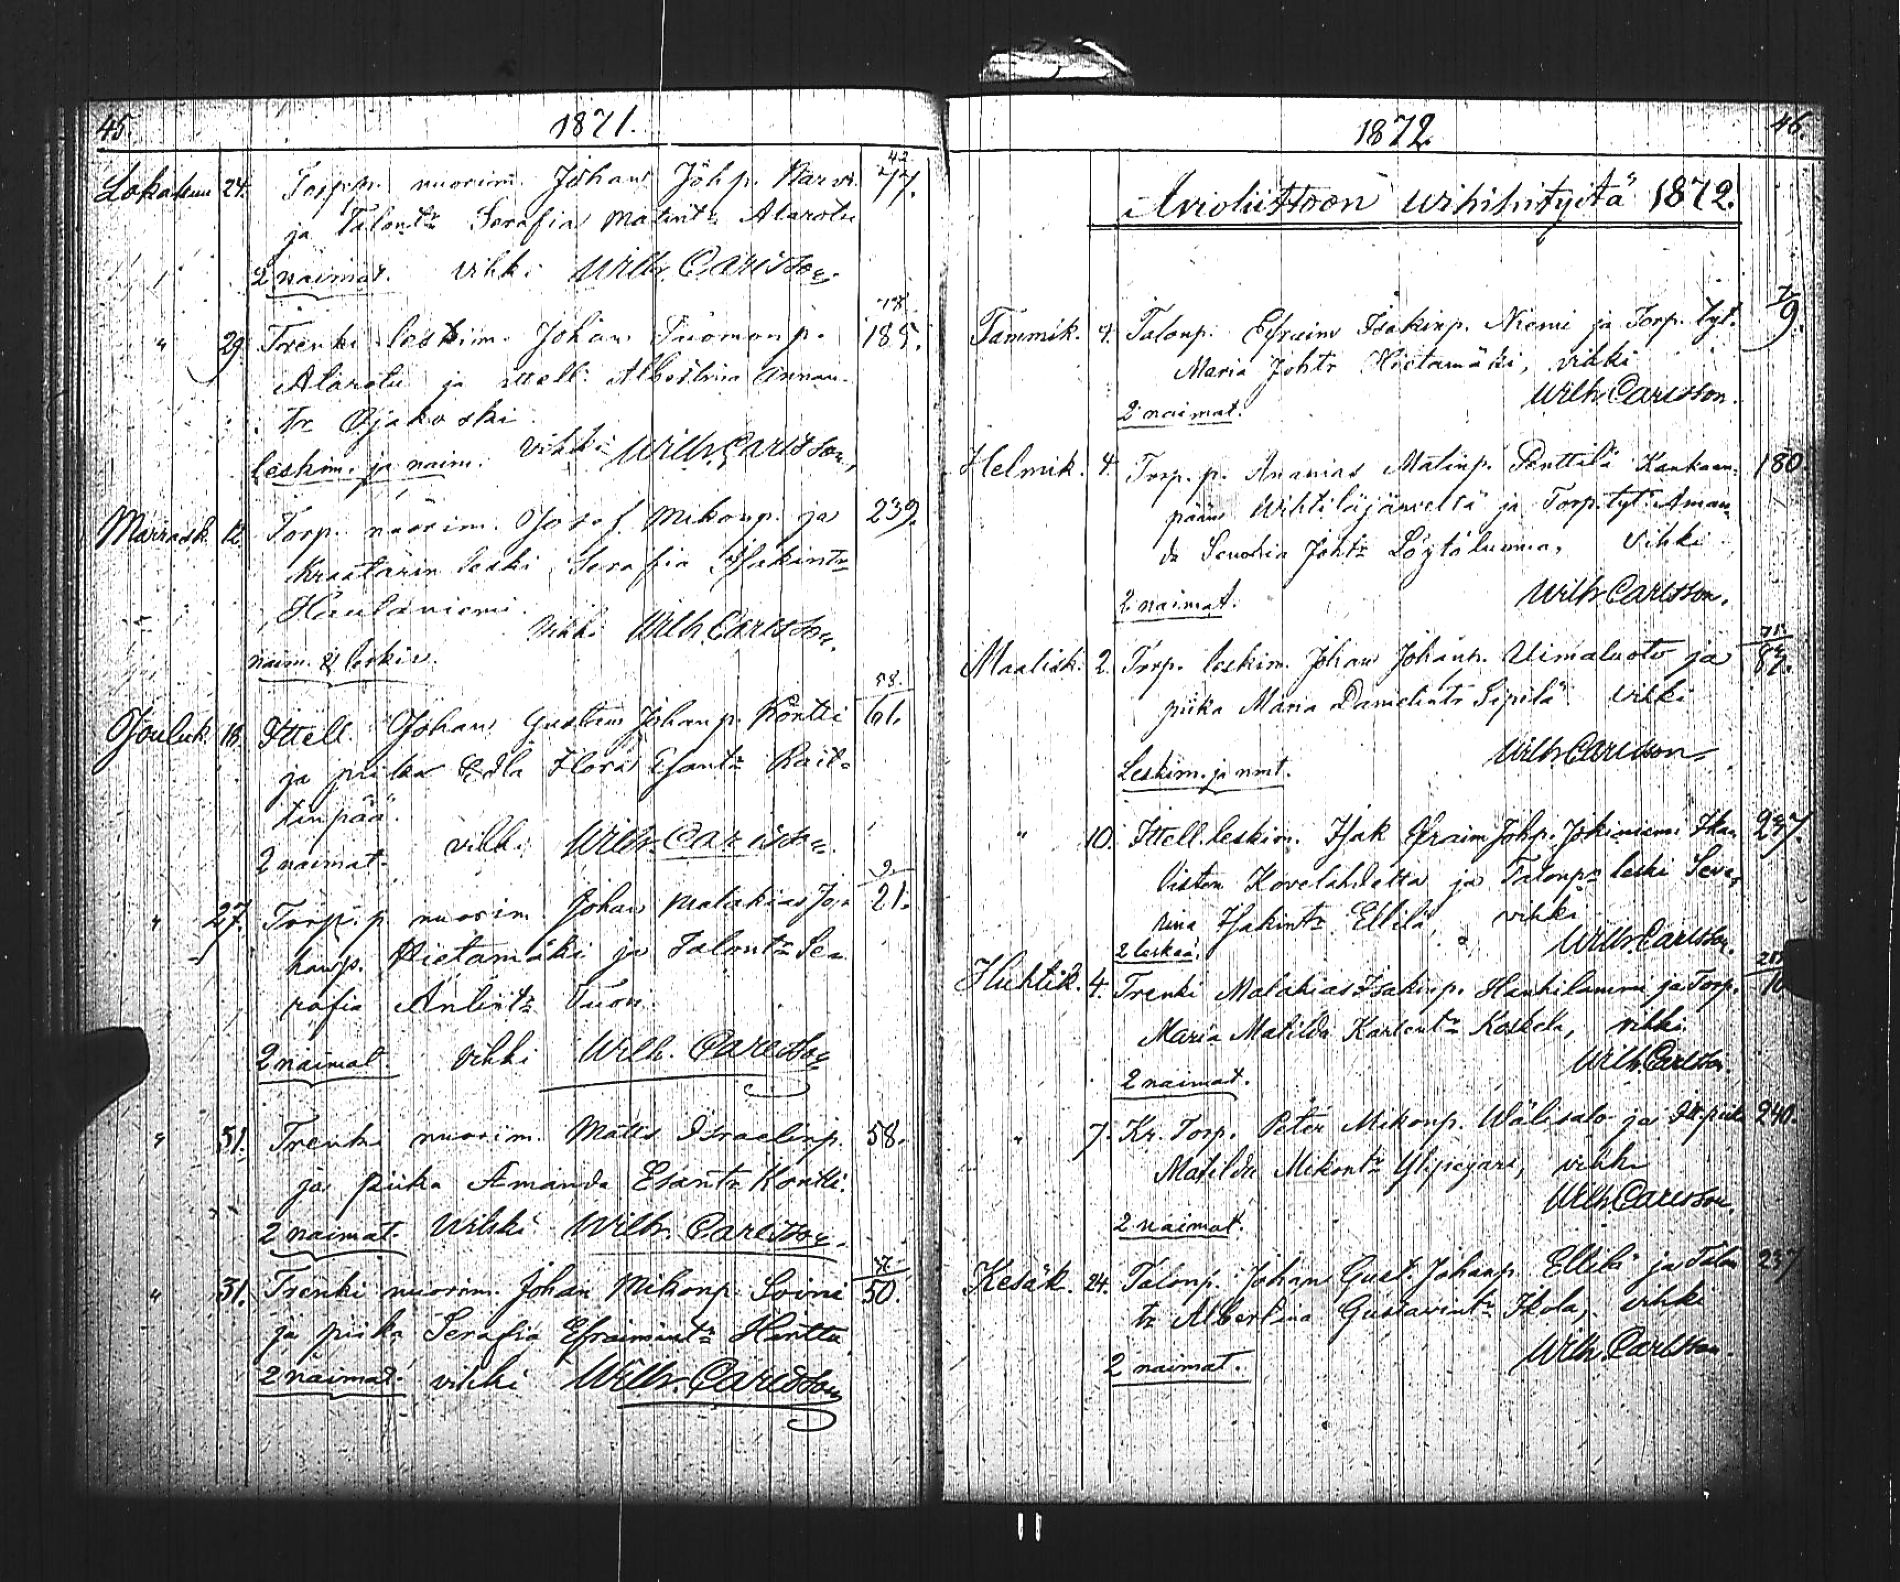 45. 1871.
Lokakuu 24. Torp.p. nuorim. Johan Johp. Karvi 42/77.
ja Talont:r Serafia Matint:r Alarotu
2 naimat. vihki Wilh. Carlsson.
" 29. Trenki leskim. Johan Tuomonp. 78/185.
Alarotu ja ittell. Albertina Annan
tr Ojakoski
leskim. ja naim. vihki Wilh. Carlsson,
Marrask. 12. Torp. nuorim. Josef Mikonp. ja 239.
Kraatarin leski Serafia Isakint:r
Haulaniemi.
naim. & leskiv. vihki Wilh Carlsson.
Jouluk. 18. Ittell. Johan Gustav Johanp. Kontti 58./61.
ja piika Edla Flora Esant:r Rait-
tinpää.
2 naimat. vihki Wilh. Carlsson.
" 27. Torp. p. nuorim Johan Malakias Jo- 9./21.
hanp. Hietamäki ja Talont:r Se-
rafia Antint:r Tuori.
2 naimat. vihki Wilh. Carlsson
" 31. Trenki nuorim. Matts Israelinp. 58.
ja piika Amanda Esantr Kontti.
2 naimat. Vihki Wilh. Carlsson.
" 31. Trenki nuorim. Johan Mikonp. Soini 50.
ja piika Serafia Efraimint:r Hirttu
2 naimat. vihki Wilh. Carlsson
1872. 46.
Avioliittoon wihihityitä 1872.
Tammik. 4. Talonp. Efraim Isakinp. Niemi ja Torp. tyt. 7/9.
Maria Johtr Hietamäki, vihki
2 naimat. Wilh. Carlsson.
Helmik. 4. Torp. p. Ananias Matinp. Penttilä Kankaan- 180.
pään Wihtiläjärveltä ja Torp. tyt. Aman-
da Johtr Löytöluoma, Vihki
2 naimat. Wilh. Carlsson.
Maalisk. 2. Torp. leskim. Johan Johanp. Uimaluoto ja 87.
piika Maria Danielintr Sipilä vihki
Leskim. ja nmt. Wilh. Carlsson
" 10. Ittell. leskim. Isak Efraim Johp. Jokiniemi Ika- 237.
listen Kovelahdelta ja Talonp:n leski Seve-
rina Isakint:r Ellilä, vihki
2 leskeä. Wilh. Carlsson.
Huhtik. 4. Trenki Malakias Isakinp. Hanhilammi ja Torp.
Maria Matilda Karlent:r Koskela, vihki.
2 naimat. Wilh. Carlsson.
" 7. Kr. Torp. Peter Mikonp. Wälisalo ja Itt. piika 240.
Matilda Mikont:r vihki
2 naimat. Wilh. Carlsson.
Kesäk. 24. Talonp. Johan Gust. Johanp. Ellilä ja Talon 237
tr Albertina Gustavint:r Ikola, vihki
2 naimat. Wilh. Carlsson.